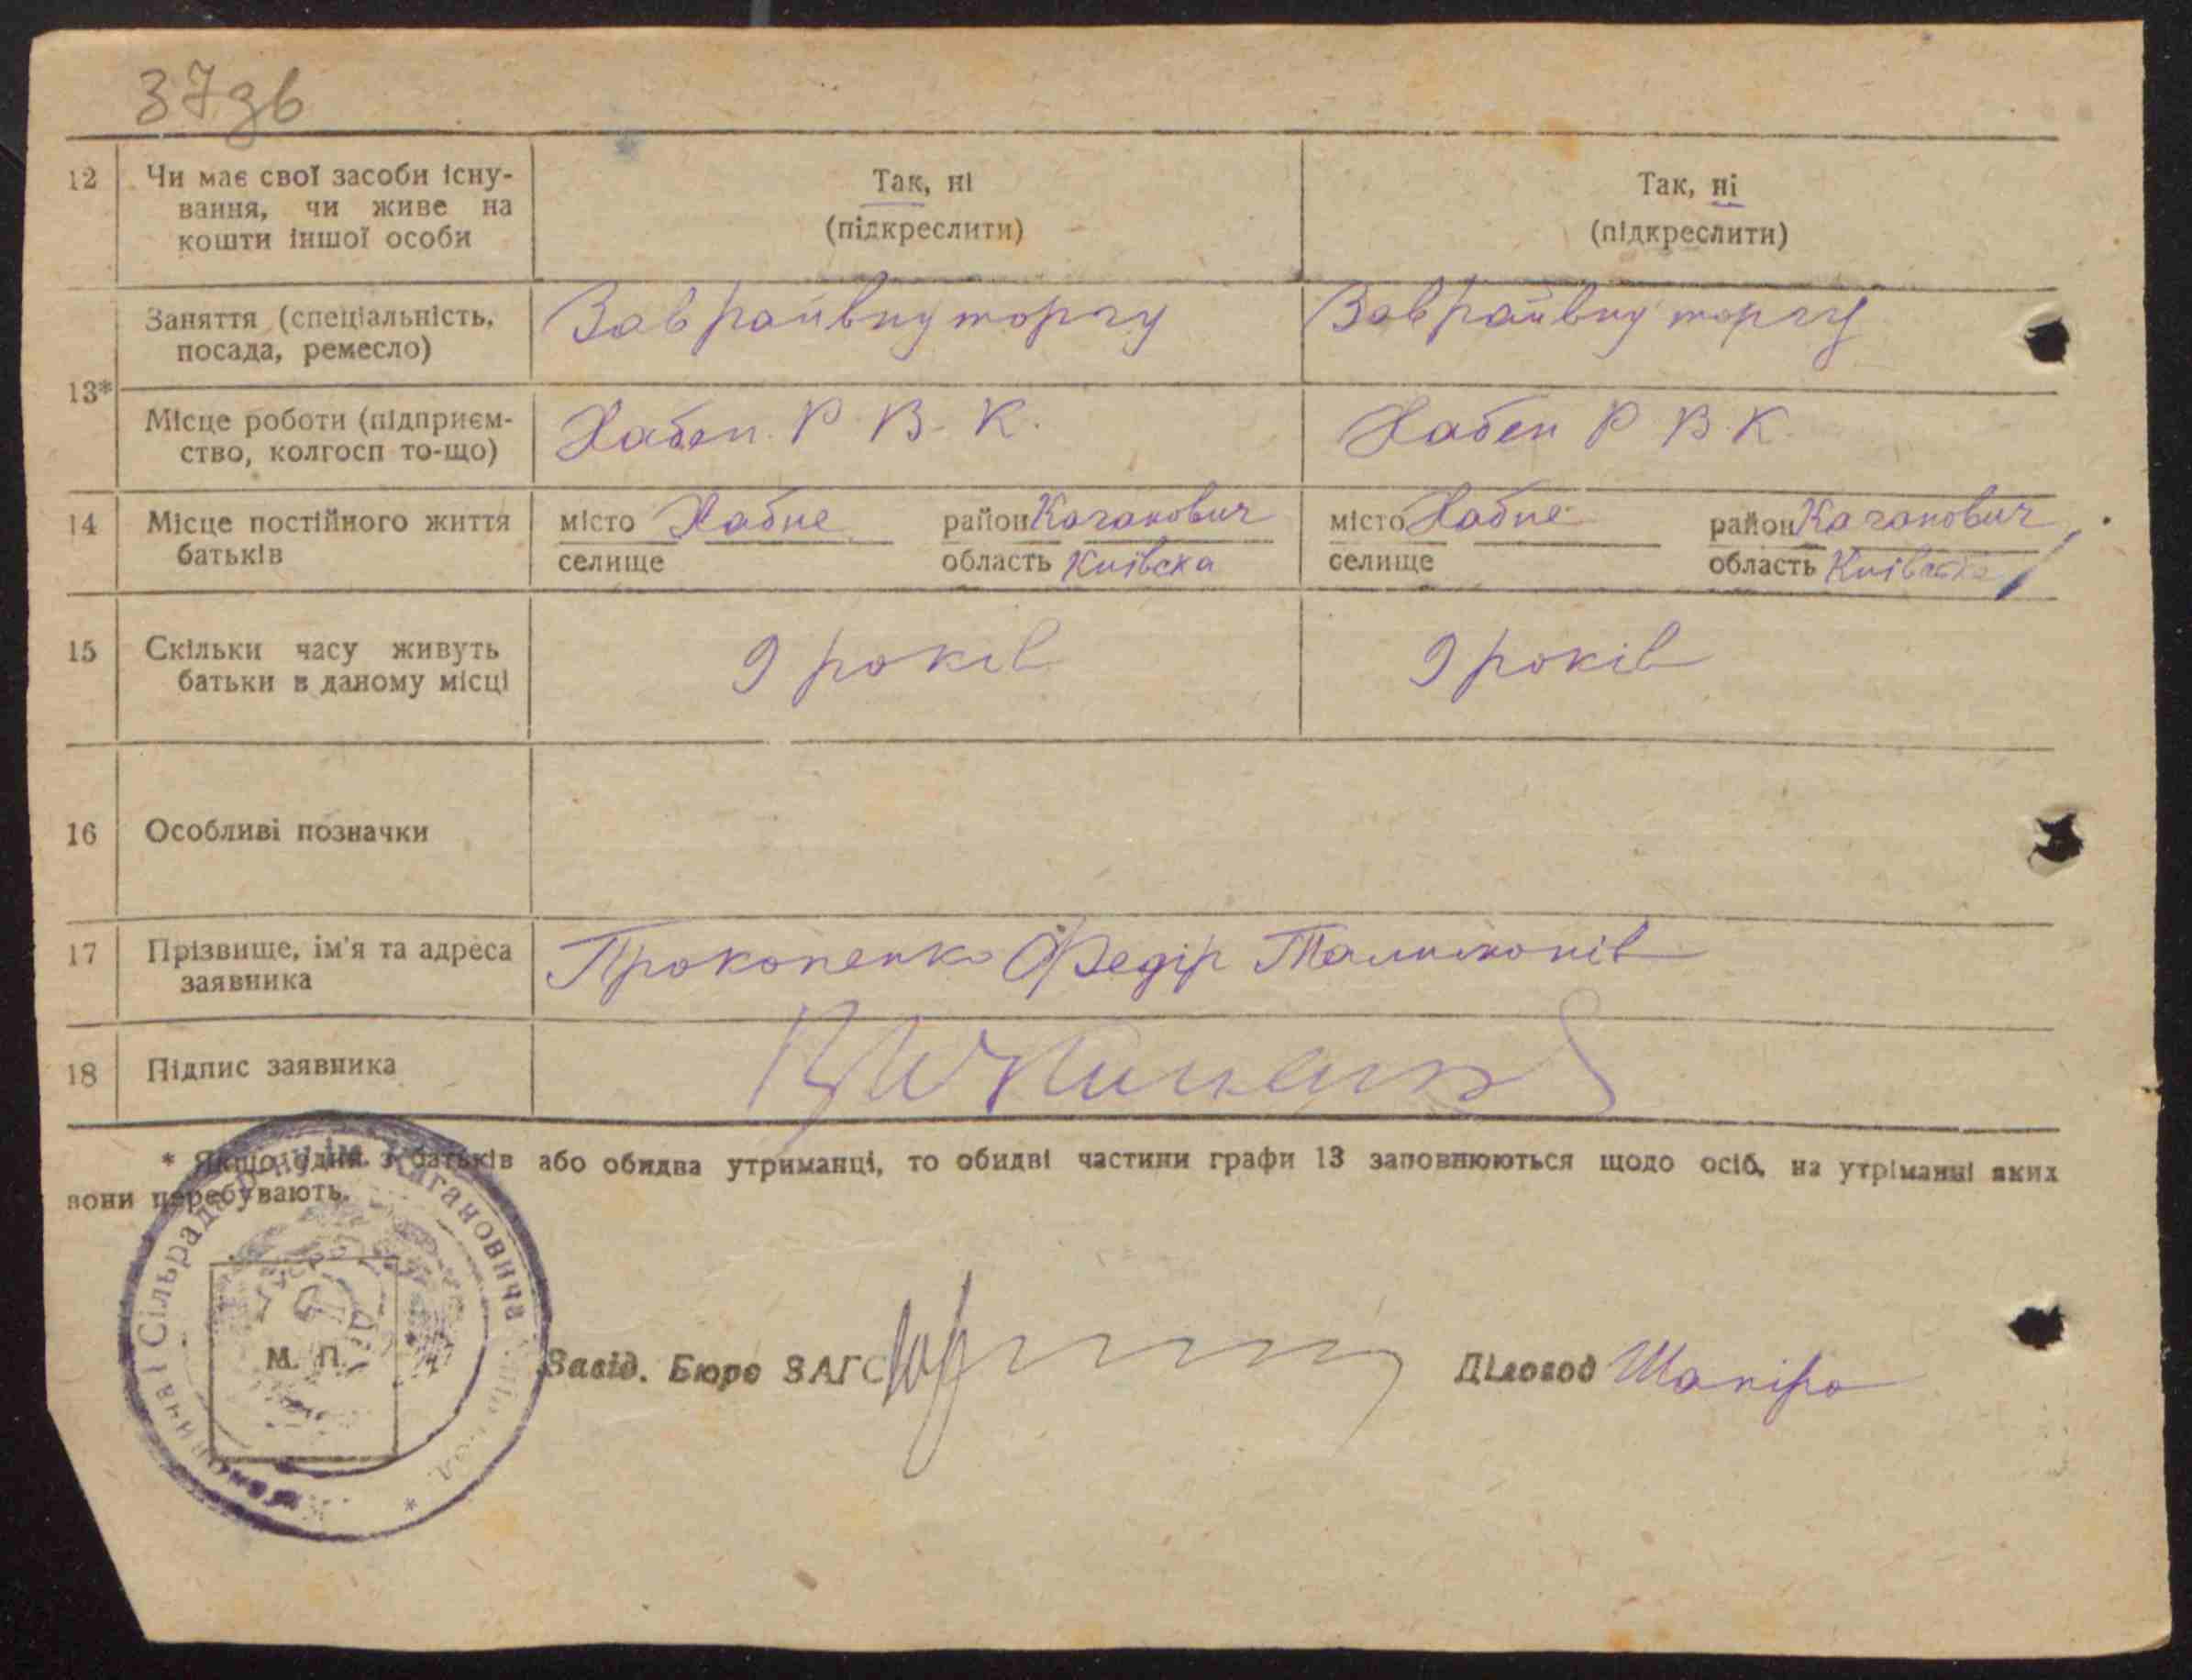 37зв
12 Чи має свої засоби існу-
вання, чи живе на
кошти іншої особи
Так, ні
(підкреслити)
Так, ні
(підкреслити)
13*
Заняття (спеціальність,
посада, ремесло)
Зав райвнуторгу
Зав райвнуторгу
Місце роботи (підприєм-
ство, колгосп то-що)
Хабен. Р. В. К.
Хабен Р В. К.
14 Місце постійного життя
батьків
місто Хабне район Каганович
селище область Київска
місто Хабне район Каганович
селище область Київска
15 Скільки часу живуть
батьки в даному місці
9 років
9 років
16 Особливі позначки
17 Прізвище, ім'я та адреса
заявника
Прокопенко Федір
18 Підпис заявника
* Якщо один з батьків або обидва утриманці, то обидві частини графи 13 заповнюються щодо осіб, на утріманні яких
вони перебувають.
Сільрада ім. Кагановича
М. П.
Завід. Бюро ЗАГС
Діловод Шапіро